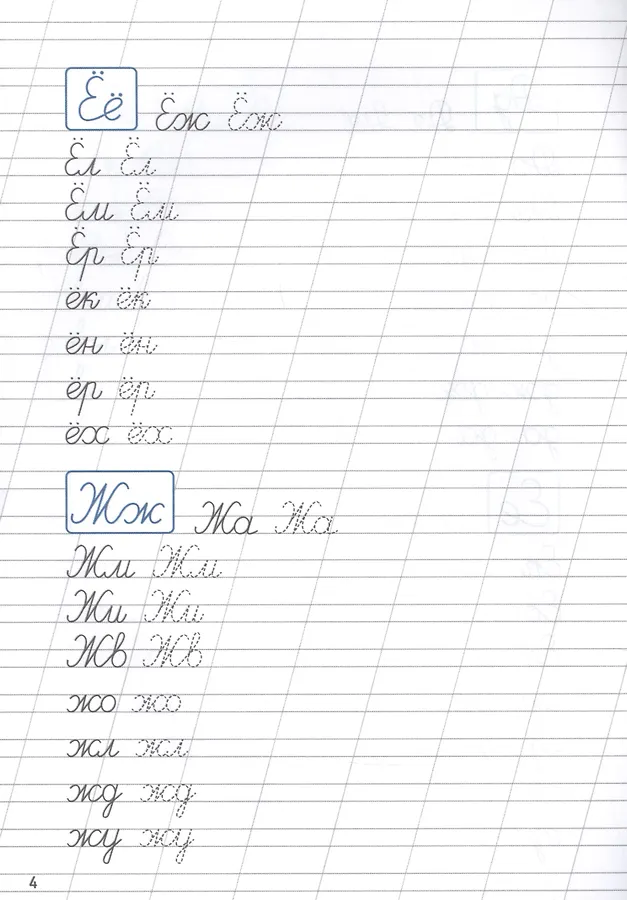 Ёё Ёж Ёж
Ёл Ёл
Ём Ём
Ёр Ёр
ёк ёк
ён ён
ёр ёр
ёх ёх
Жж Жа Жа
Жм Жм
Жи Жи
Жв Жв
жо жо
жл жл
жд жд
жу жу
4